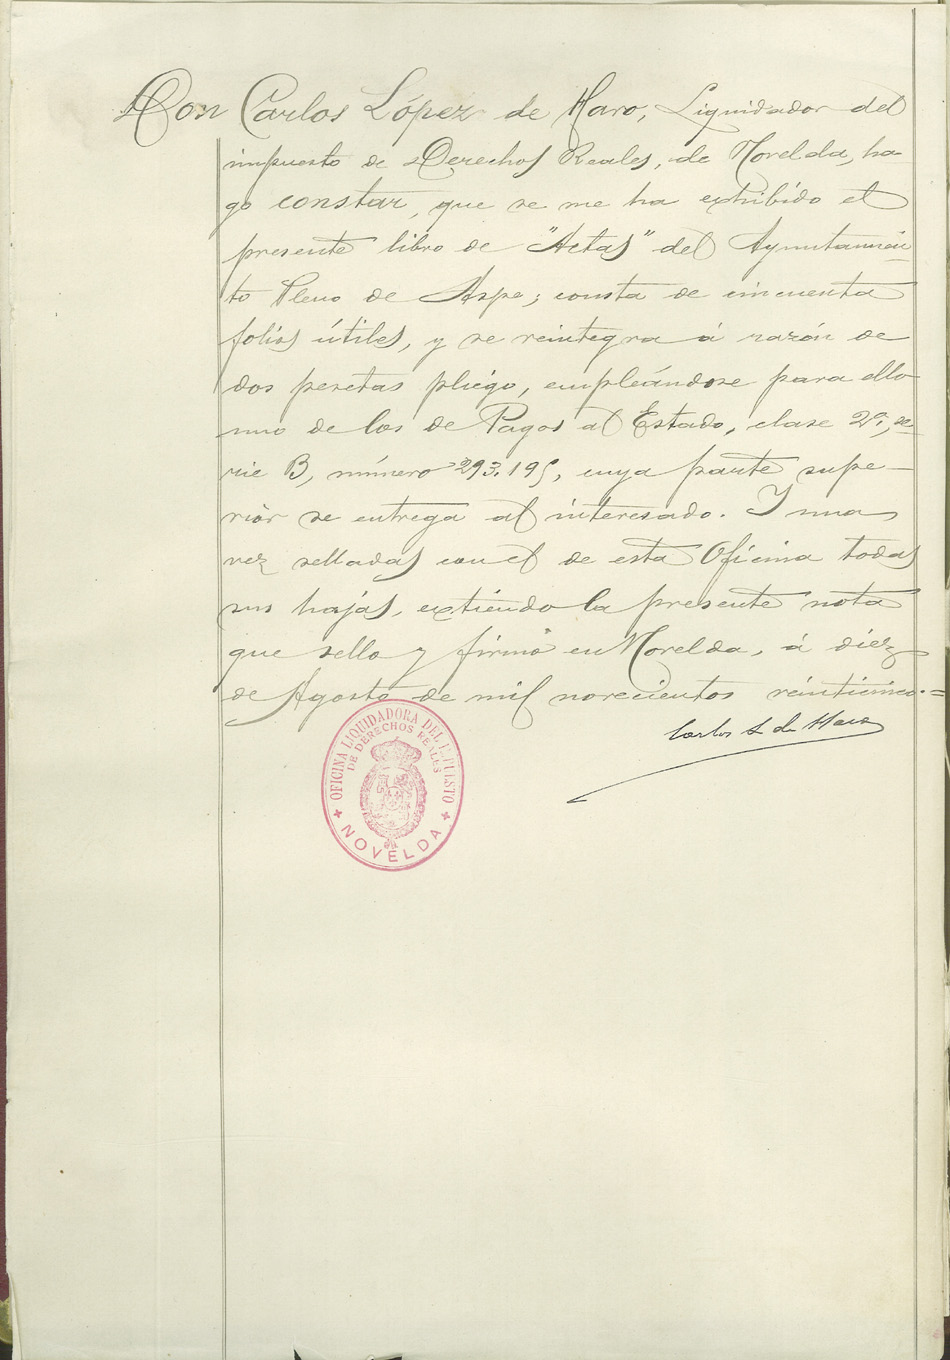 Don Carlos López de Haro, Liquidador del
impuesto de Derechos Reales, de Novelda, ha-
go constar, que se me ha exhibído el
presente libro de "Actas" del Ayuntamien-
to Pleno de Aspe; consta de cincuenta
folios útiles, y se reintegra á razón de
dos pesetas pliégo, empleándose para ello
uno de los de Pagos al Estado, clase 2ª, se-
rie B, número 293.195, cuya parte supe-
riór se entrega al interesado. Y una
vez selladas con el de esta Oficina todas
sus hojas, extiendo la presente nota
que sello y firmo en Novelda, á diez
de Agosto de mil novecientos veinticinco.=
Carlos L de Haro
OFICINA LIQUIDADORA DEL IMPUESTO
DE DERECHOS REALES
NOVELDA